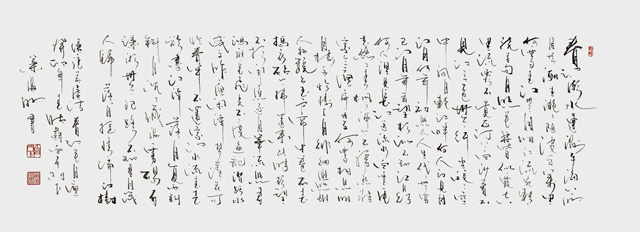 春江潮水連海平海上明
月共潮生灩灩隨波千萬里
何處春江無月明江流宛轉
繞芳甸月照花林皆似霰空
里流霜不覺飛汀上白沙看不
見江天一色無纖塵皎皎空
中孤月輪江畔何人初見月
江月何年初照人人生代代無窮
已江月年年望相似不知江月待
何人但見長江送流水白雲一片
去悠悠青楓浦上不勝愁誰
家今夜扁舟子何處相思明
月樓可憐樓上月徘徊應照離
人妝鏡臺玉戶簾中卷不去
擣衣砧上拂還來此時相望
不相聞願逐月華流照君
鴻雁長飛光不度魚龍潛躍水
成文昨夜閑潭夢落花可
憐春半不還家江水流春去
欲盡江潭落月復西
斜月沉沉藏海霧碣石
瀟湘無限路不知乘月幾
人歸落月搖情滿江樹
張若虛詩春江花月夜